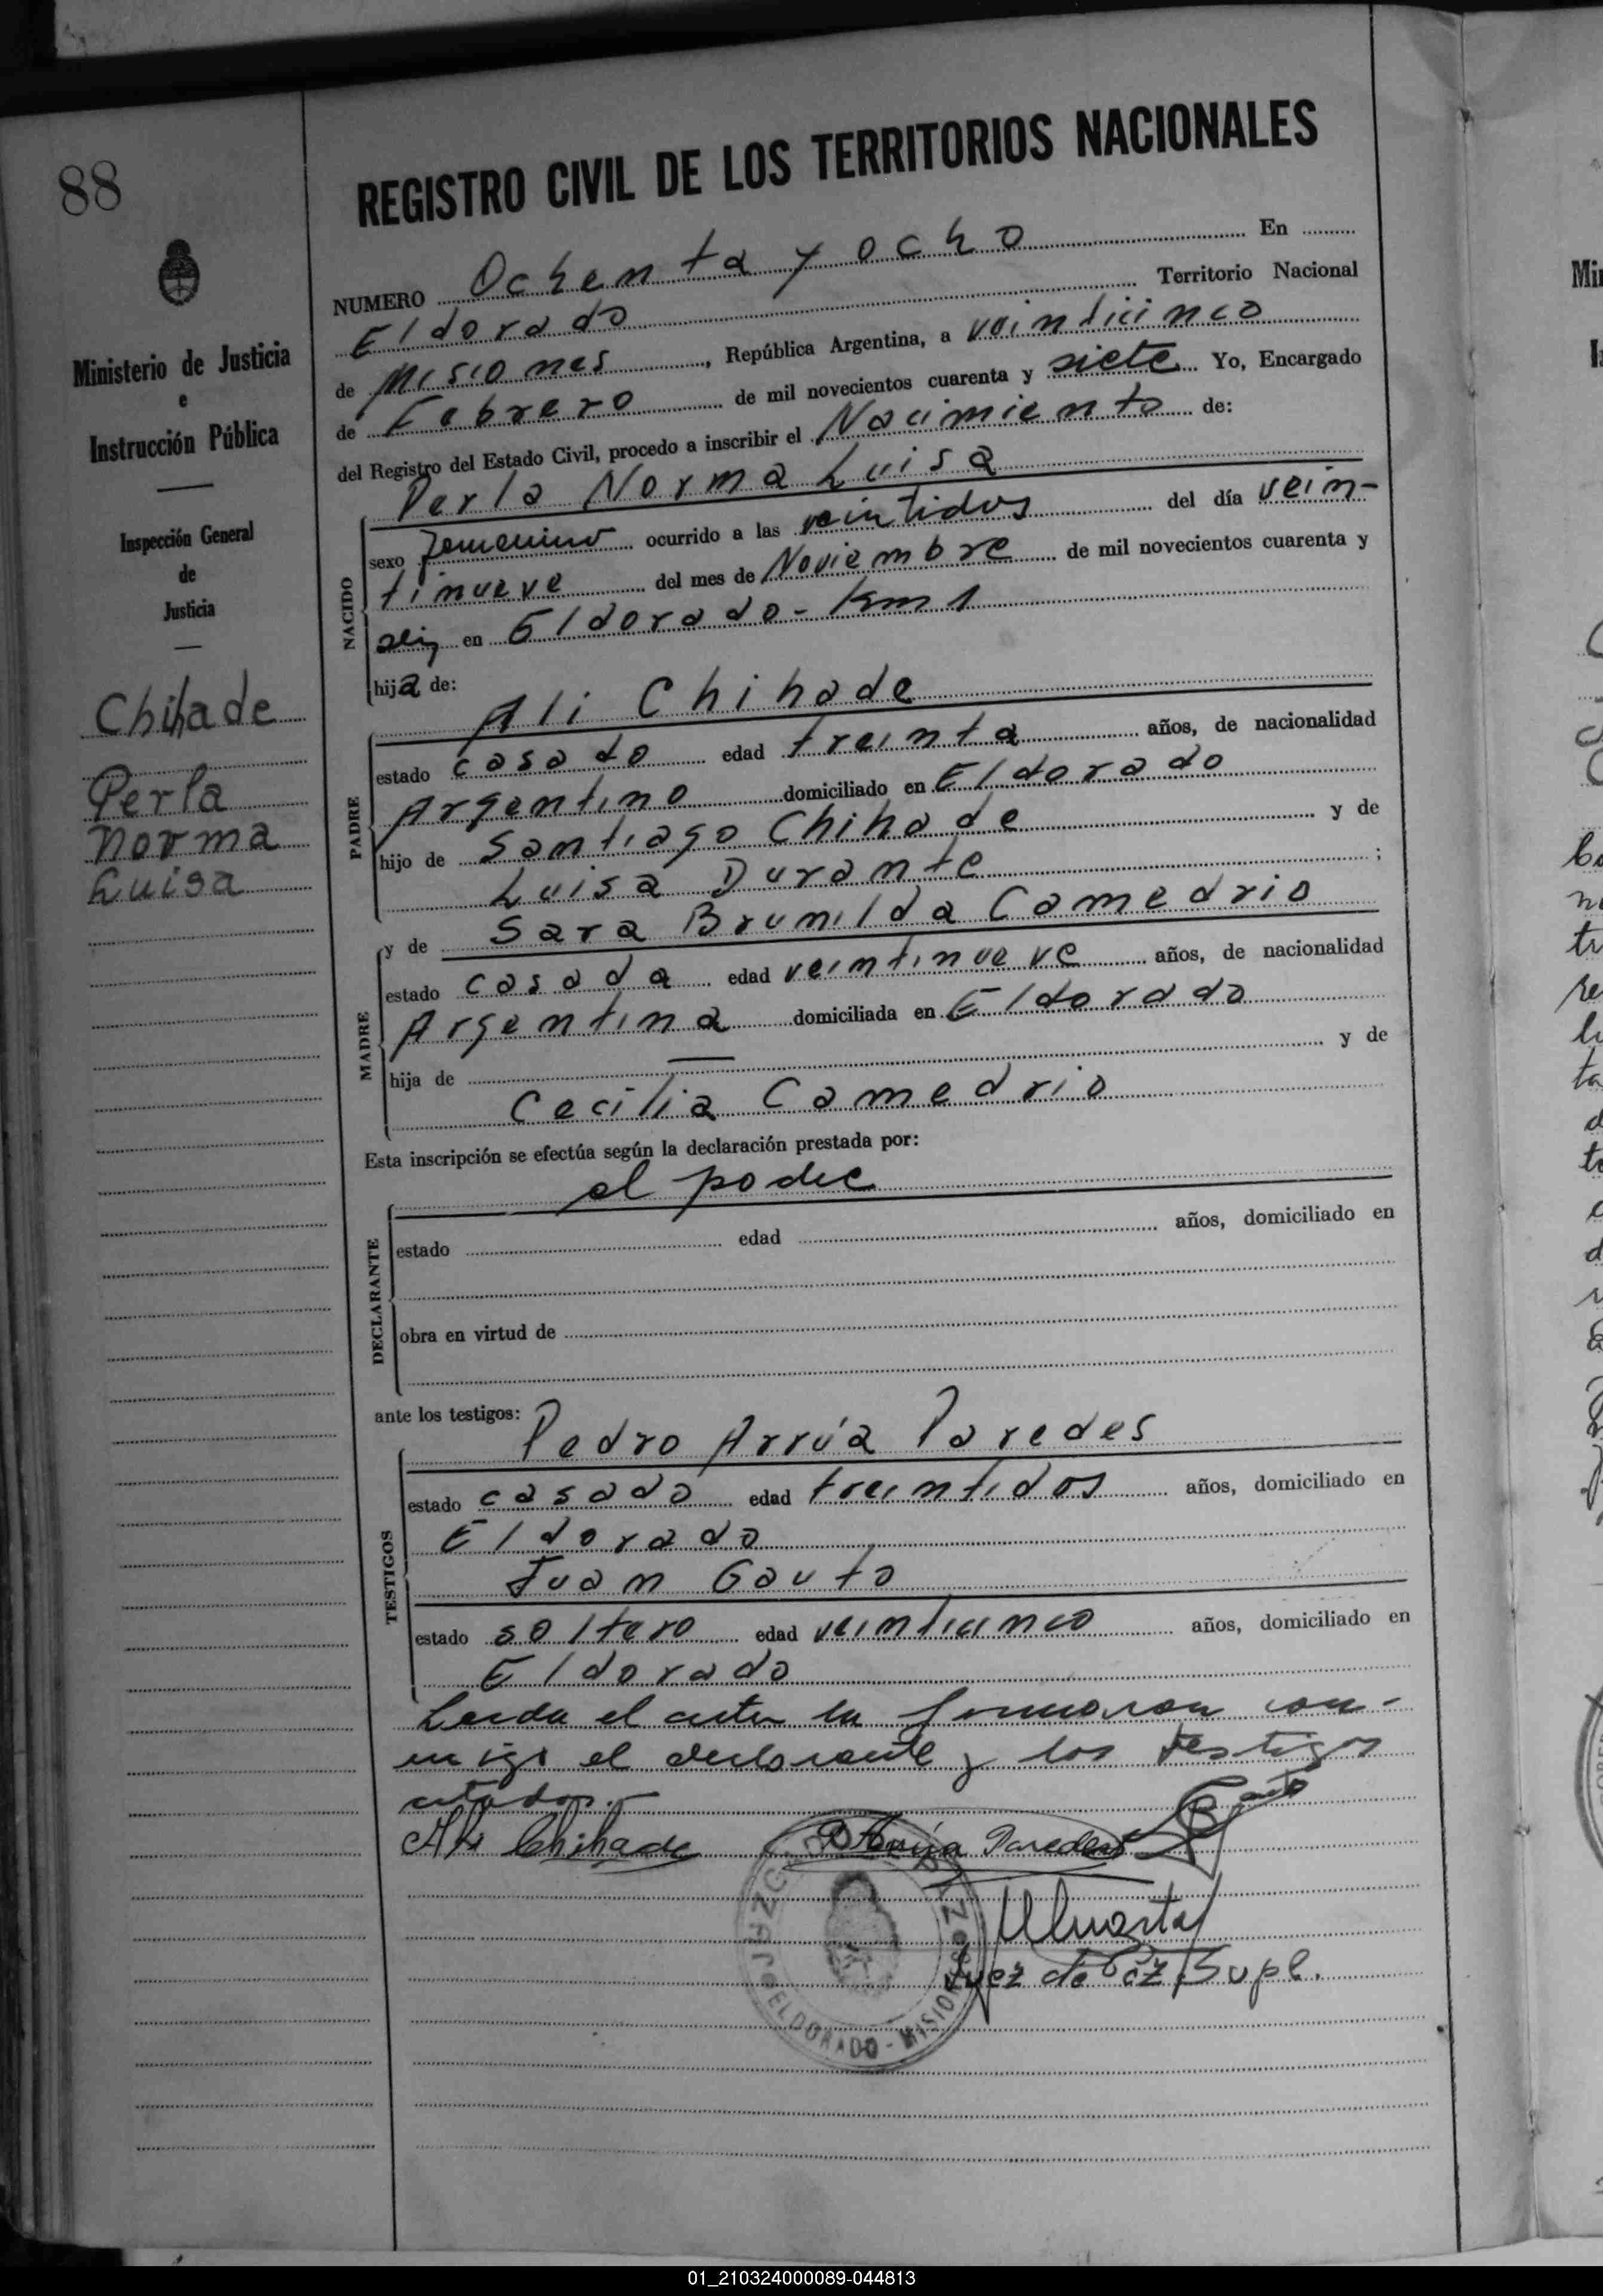 88
REGISTRO CIVIL DE LOS TERRITORIOS NACIONALES
NUMERO Ochenta y ocho En
Eldorado Territorio Nacional
de Misiones, República Argentina, a veinticinco
de Febrero de mil novecientos cuarenta y siete Yo, Encargado
del Registro del Estado Civil, procedo a inscribir el Nacimiento de:
Perla Norma Luisa
sexo femenino ocurrido a las veintidos del día vein-
tinueve del mes de Noviembre de mil novecientos cuarenta y
seis en Eldorado - Km 1
hija de:
NACIDO
Ali Chihade
estado casado edad treinta años, de nacionalidad
Argentino domiciliado en Eldorado
hijo de Santiago Chihade y de
Luisa Durante ;
PADRE
y de Sara Brunilda Camedrio
estado casada edad veintinueve años, de nacionalidad
Argentina domiciliada en Eldorado
hija de — y de
Cecilia Camedrio
MADRE
Esta inscripción se efectúa según la declaración prestada por:
el padre
estado edad años, domiciliado en
obra en virtud de
DECLARANTE
ante los testigos:
Pedro Arrúa Paredes
estado casado edad treintidos años, domiciliado en
Eldorado
Juan Gauto
estado soltero edad veinticinco años, domiciliado en
Eldorado
TESTIGOS
Leida el acta la firmaron con-
migo el declarante y los testigos
citados.-
Ali Chihade P. Arrúa Paredes
Juez de Paz Supl.
JUZGADO DE PAZ
ELDORADO - MISIONES
Ministerio de Justicia
e
Instrucción Pública
Inspección General
de
Justicia
Chihade
Perla
Norma
Luisa
01_210324000089-044813